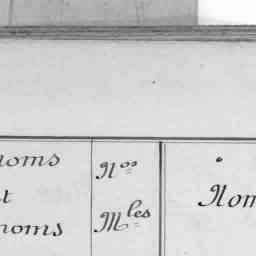 noms
et
noms
Nos
Mles
Nom